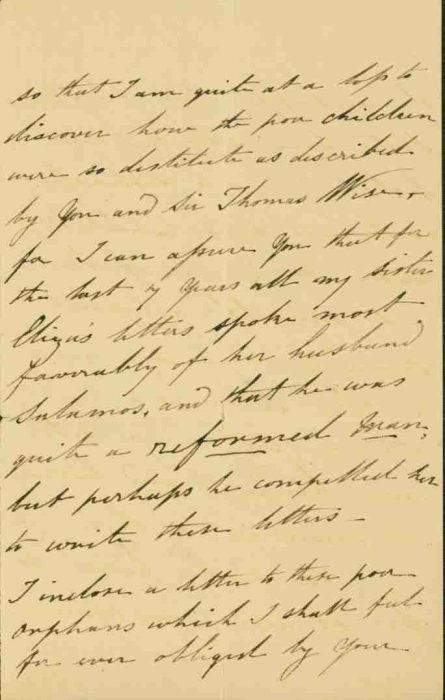 so that I am quite at a loss to
discover how the poor children
were so destitute as described
by You and Sir Thomas Wise,
for I can assure You that for
the last 7 Years all my sister
Eliza's letters spoke most
favorably of her husband
Salamos, and that he was
quite a reformed Man,
but perhaps he compelled her
to write these letters -
I inclose a letter to these poor
orphans which I shall feel
for ever obliged by Your